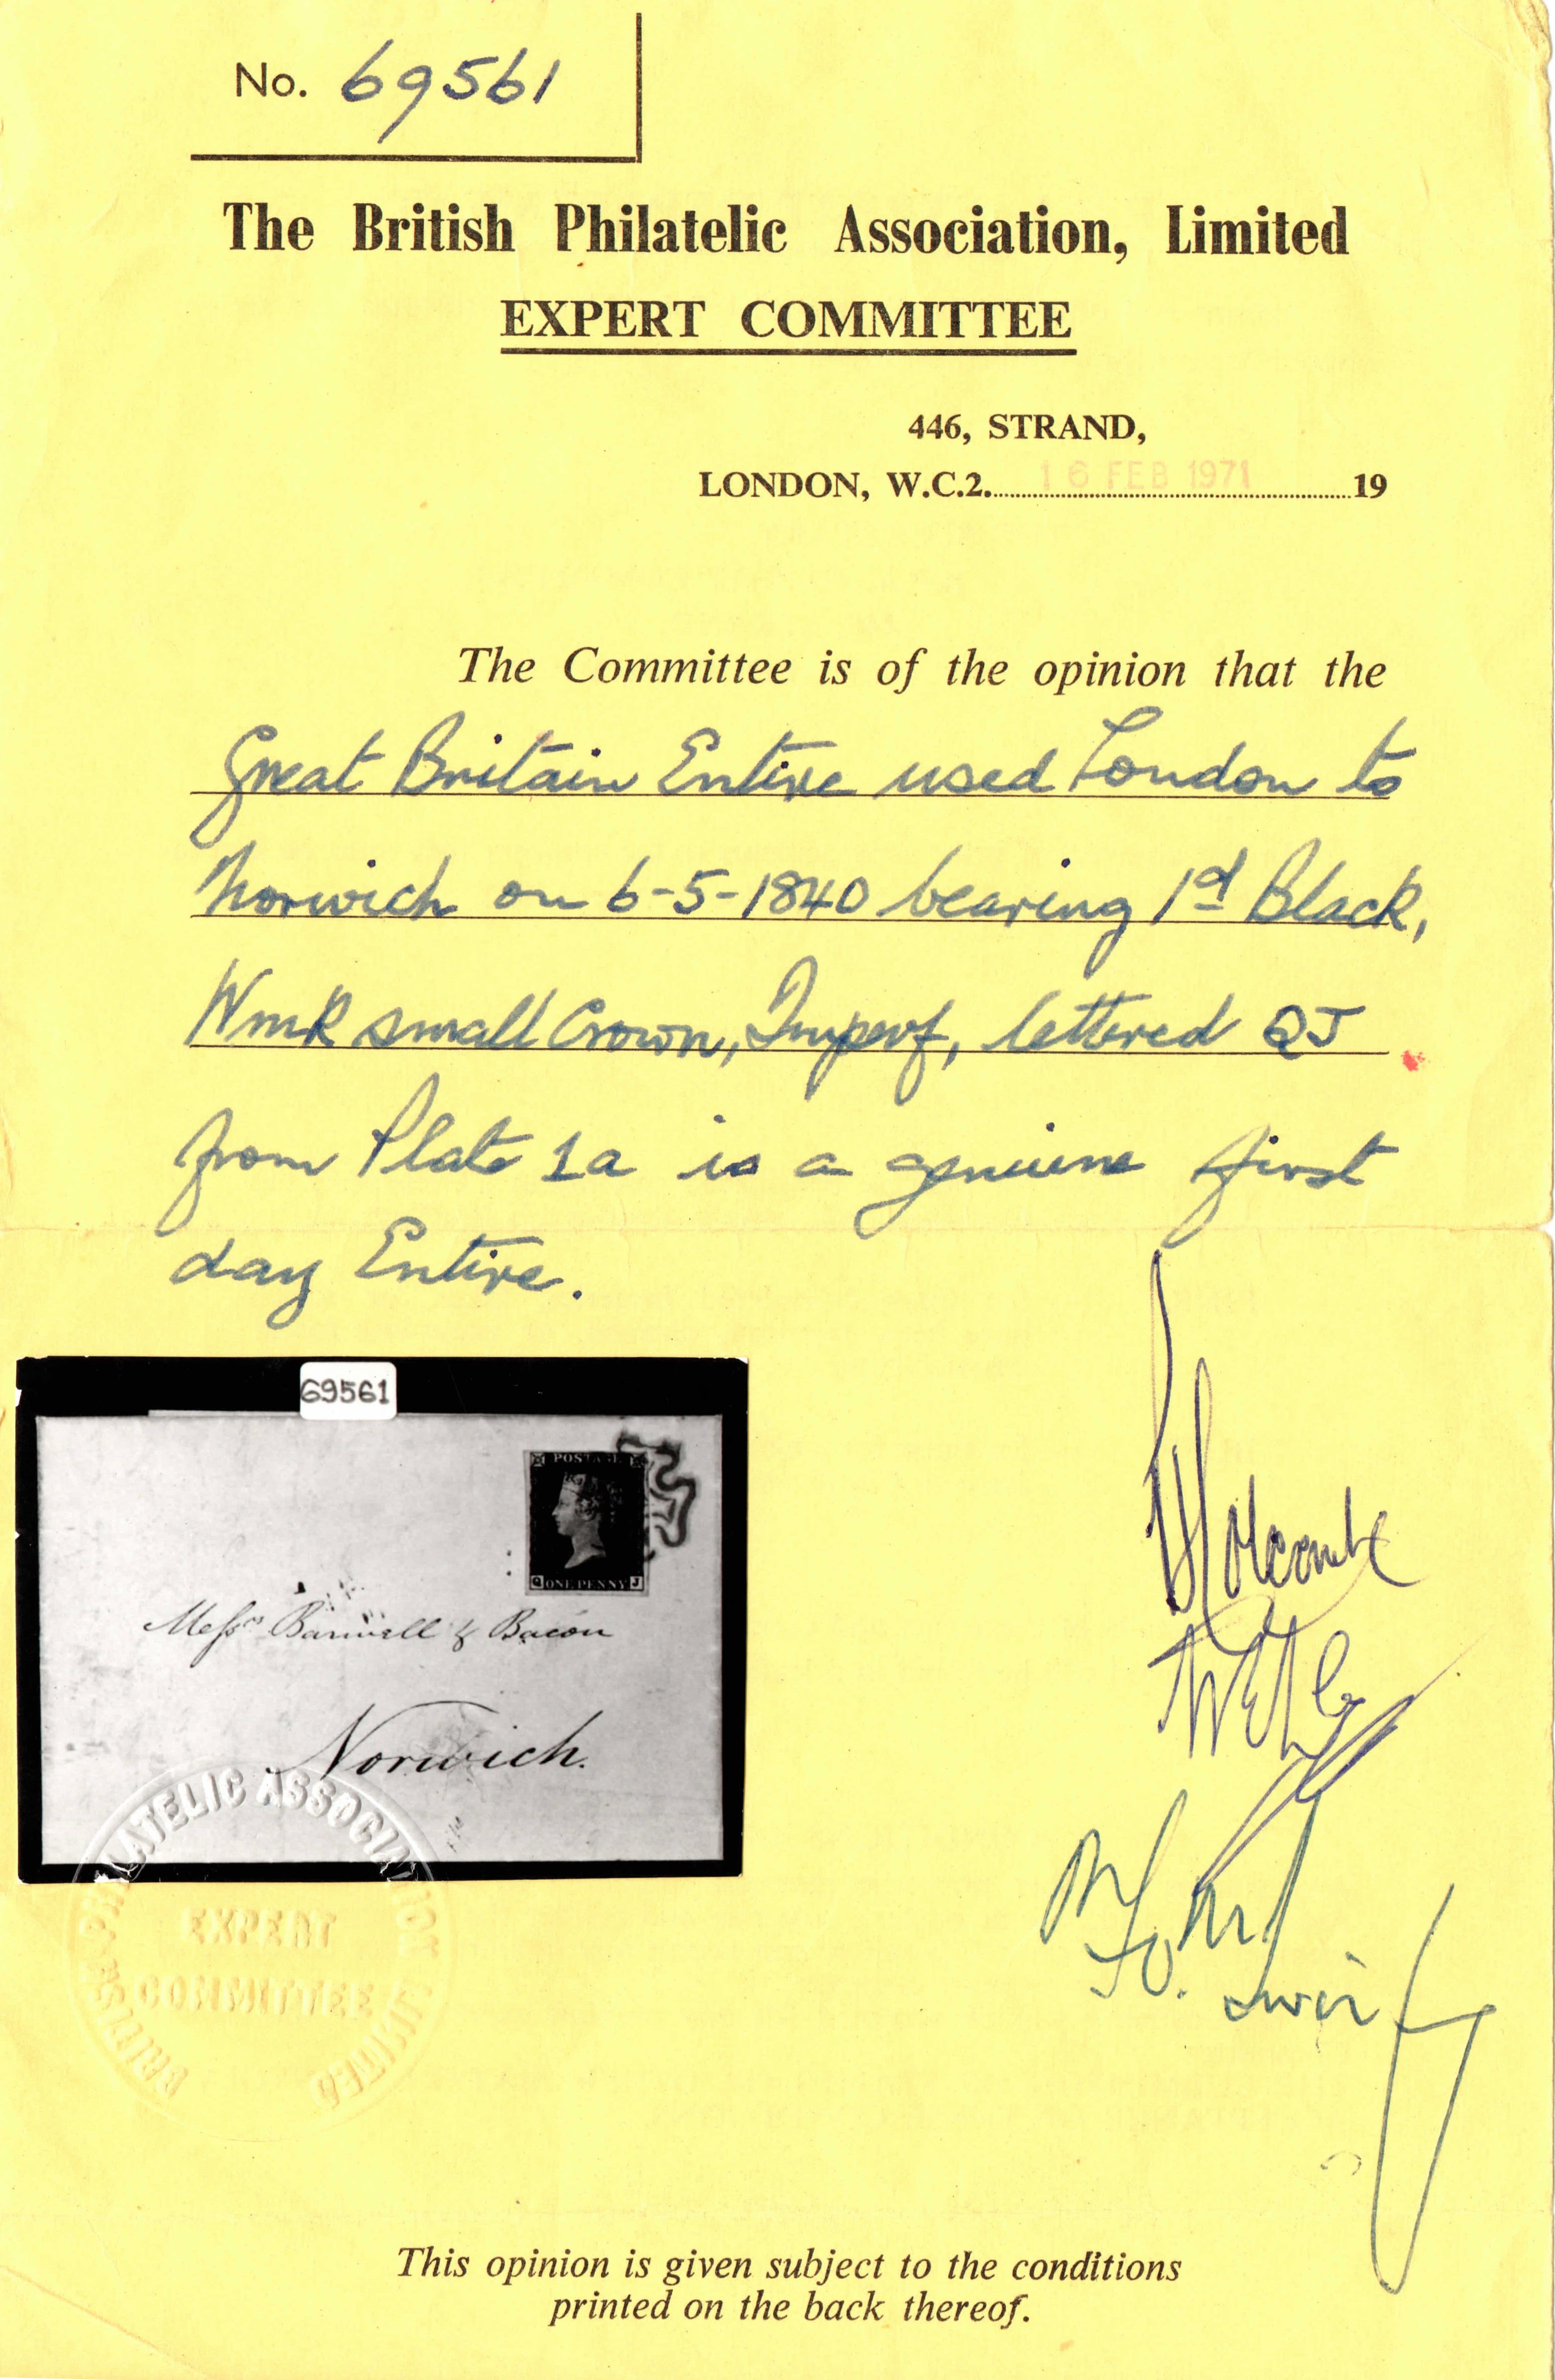 No. 69561
The British Philatelic Association, Limited
EXPERT COMMITTEE
446, STRAND,
LONDON, W.C.2. 16 FEB 1971 19
The Committee is of the opinion that the
Great Britain Entire used London to
Norwich on 6-5-1840 bearing 1d Black,
Wmk small Crown, Imperf, lettered QJ
from Plate 1a is a genuine first
day Entire.
69561
POSTAGE
Q ONE PENNY J
Messrs Barwell & Bacon
Norwich.
BRITISH PHILATELIC ASSOCIATION LIMITED
EXPERT
COMMITTEE
Holcombe
This opinion is given subject to the conditions
printed on the back thereof.